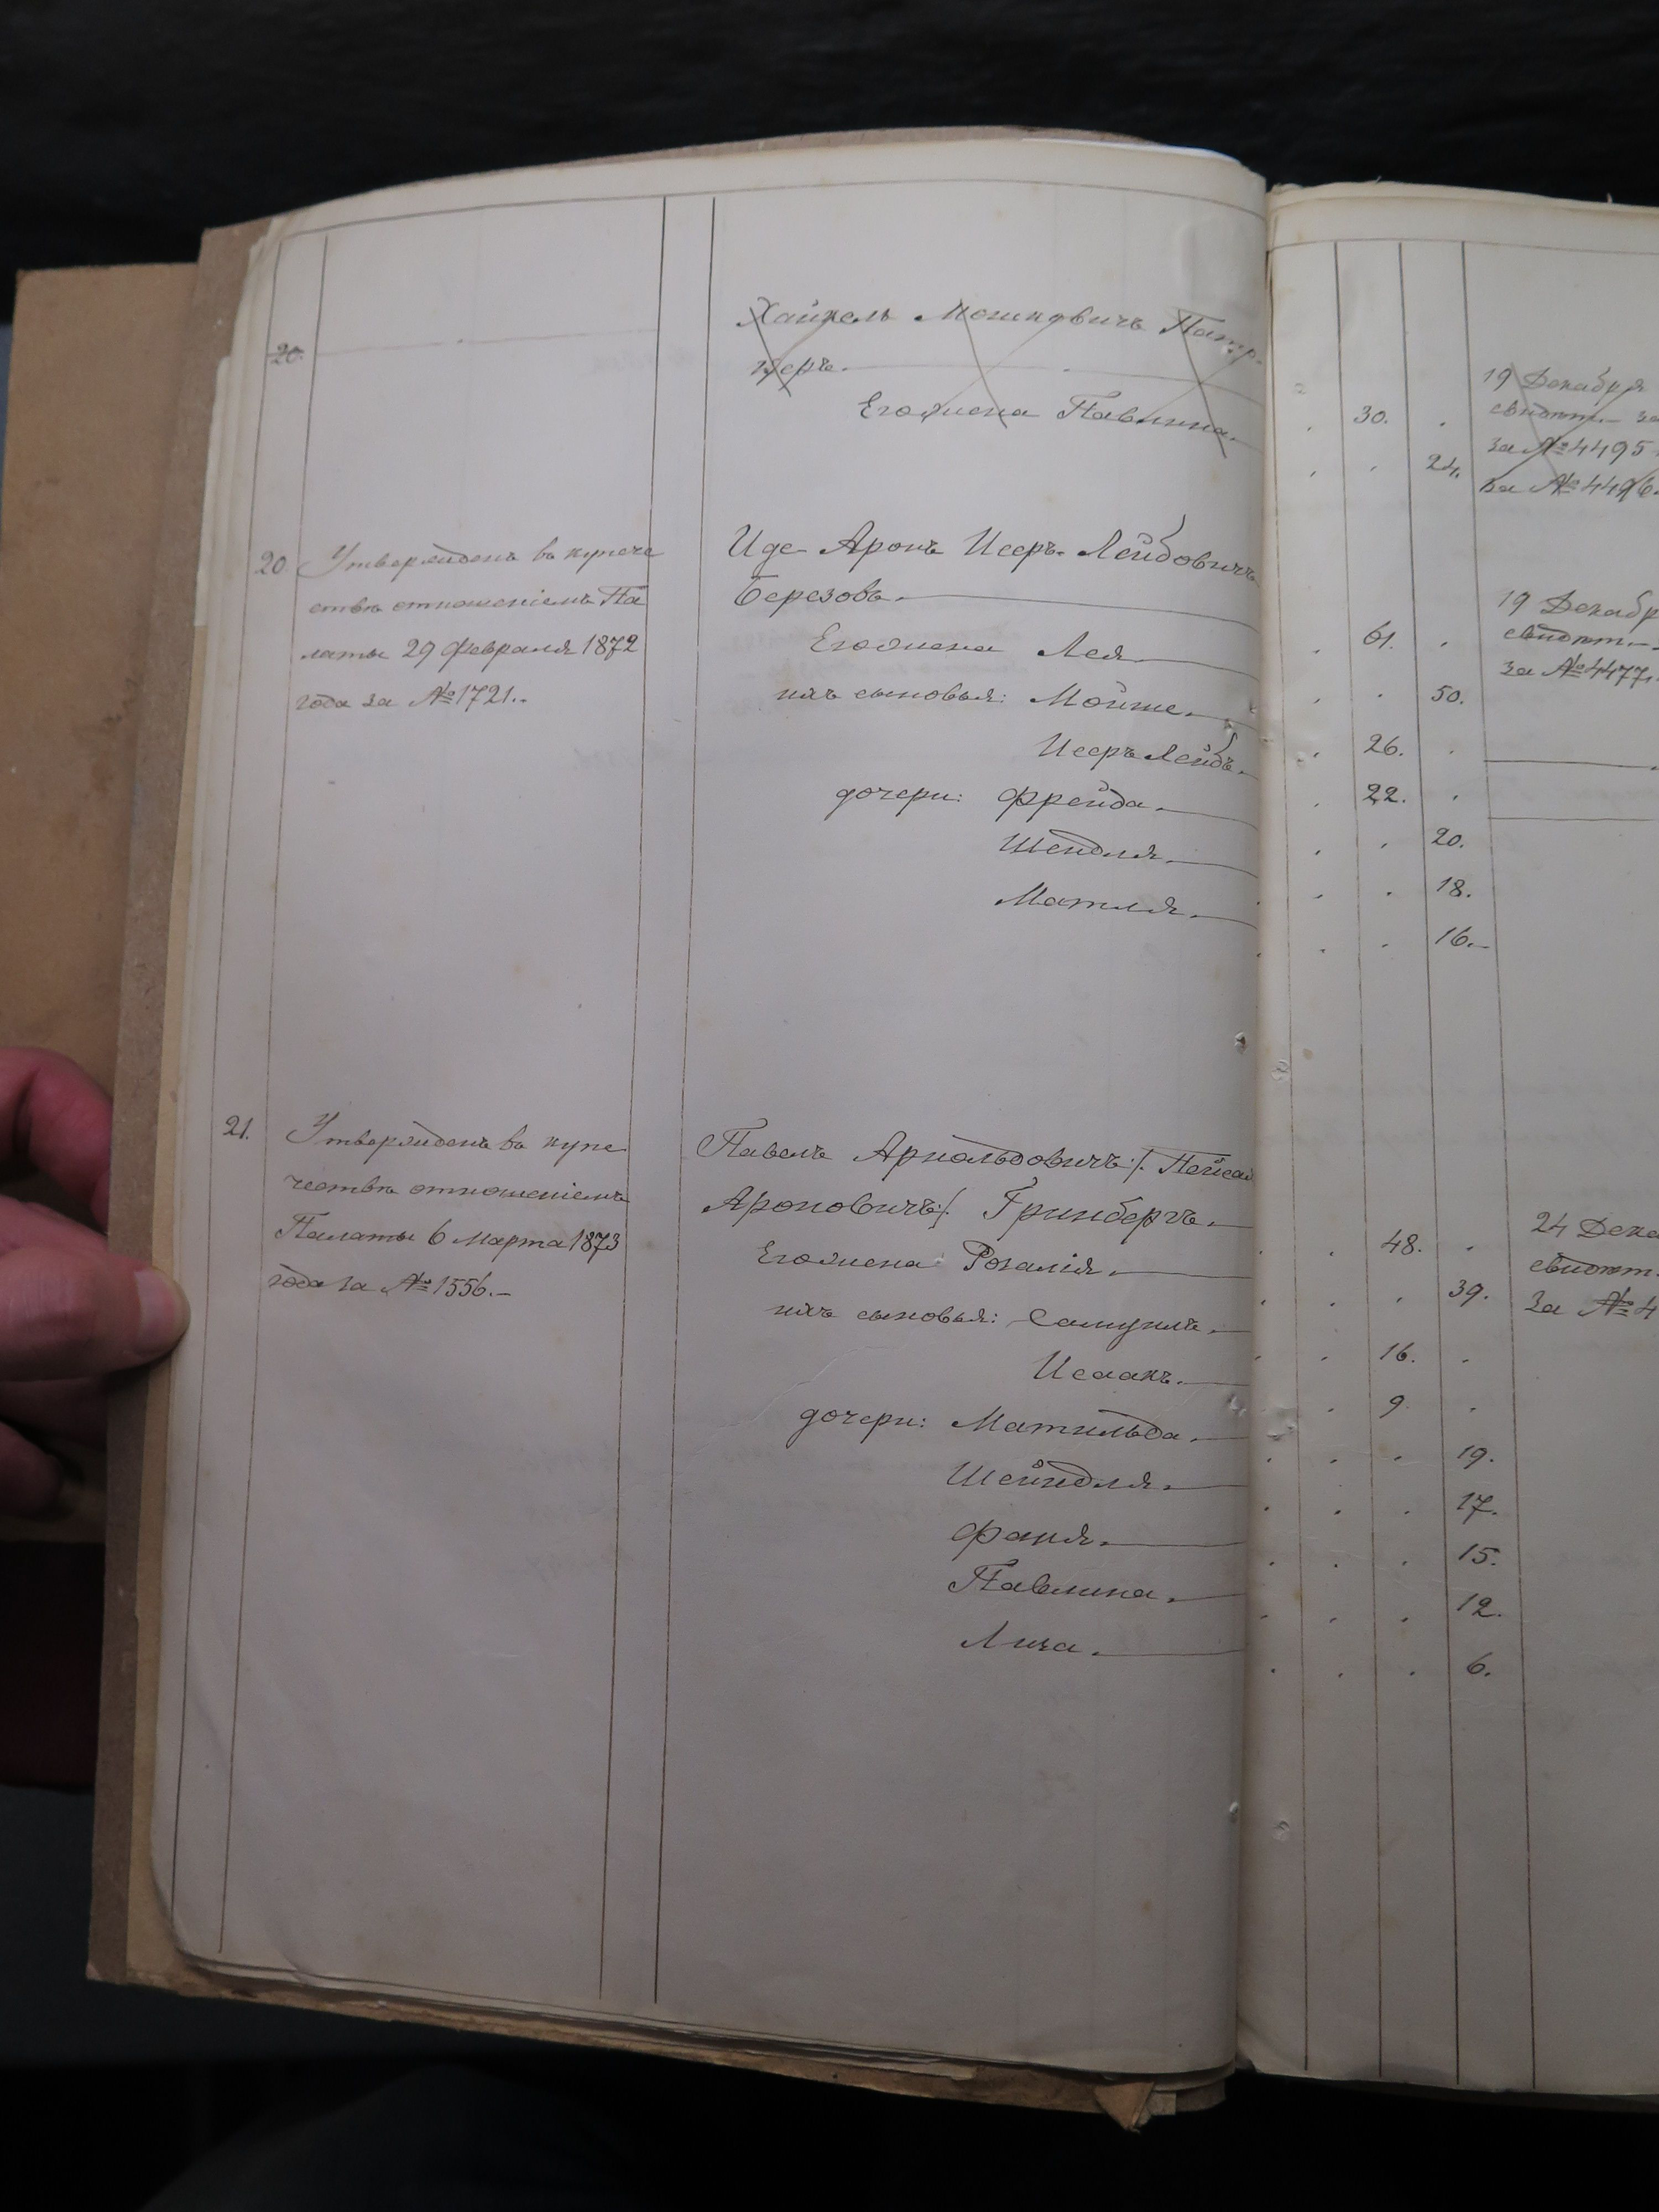 20.
Хайкель Мошковичъ Патр-
неръ.
Его жена Павлина.
30.
24.
19 Декабря
свидѣт. за
за № 4495
за № 4496.
20. Утвержденъ въ купече
ствѣ отношеніемъ Па
латы 29 Февраля 1872
года за № 1721.
Иде-Аронъ Исеръ-Лейбовичъ
Березовъ.
Его жена Лея.
ихъ сыновья: Мойше.
Исеръ Лейбъ.
дочери: Фрейда.
Шендля.
Матля.
61.
50.
26.
22.
20.
18.
16.
19 Декабр
свидѣт.
за № 4477.
21. Утвержденъ въ купе
чествѣ отношеніемъ
Палаты 6 Марта 1873
года за № 1556.
Павелъ Арнольдовичъ /:Пейсах
Ароновичъ:/ Гринбергъ.
Его жена Розалія.
ихъ сыновья: Самуилъ.
Исаакъ.
дочери: Матильда.
Шейндля.
Фаня.
Павлина.
Лиза.
48.
39.
16.
9.
19.
17.
15.
12.
6.
24 Дека
свидѣт.
за № 4